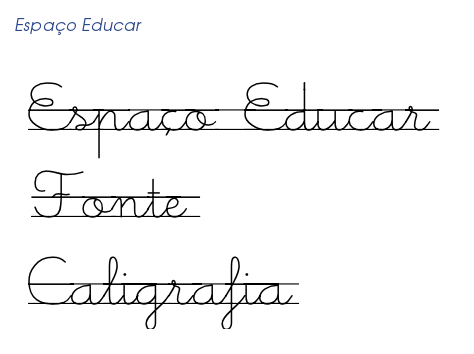 Espaço Educar
Espaço Educar
Fonte
Caligrafia